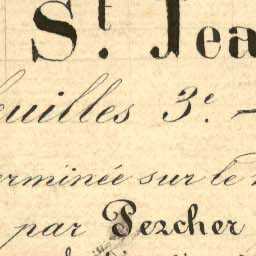 St. Jea
euilles 3e. —
erminée sur le
par Pezcher